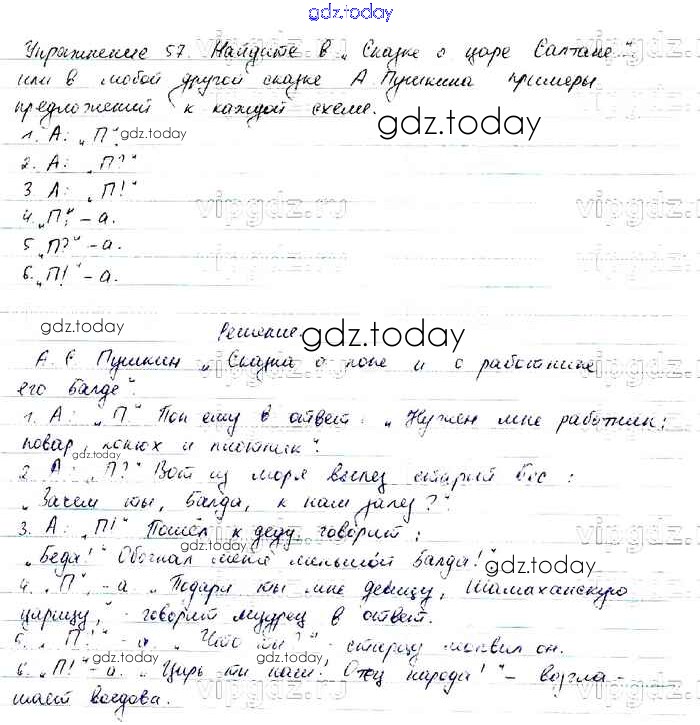 gdz.today
Упражнение 57. Найдите в „Сказке о царе Салтане"
или в любой другой сказке А Пушкина примеры
предложений к каждой схеме.
gdz.today
1. А: „П".
gdz.today
2. А: „П?"
3 А: „П!"
vipgdz.ru
vipgdz.ru
4. „П", - а.
5 „П?" - а.
6. „П!" - а.
gdz.today
Решение
gdz.today
А. С Пушкин „Сказка о попе и о работнике
его Балде".
1. А: „П." Поп ему в ответ: „Нужен мне работник:
повар, конюх и плотник".
gdz.today
2 А: „П?" Вот из моря вылез старый Бес:
„Зачем ты, Балда, к нам залез?"
3. А: „П!" Пошёл к деду, говорит:
„Беда!" Обогнал меня меньшой Балда!"
gdz.today
gdz.today
4. „П", - а „Подари ты мне девицу, Шамаханскую
царицу," - говорит мудрец в ответ.
5. „П!" - а. „Что ты?" - старцу молвил он.
gdz.today
gdz.today
6 „П!" - а. „Царь ты наш! Отец народа!" - возгла-
шает воевода.